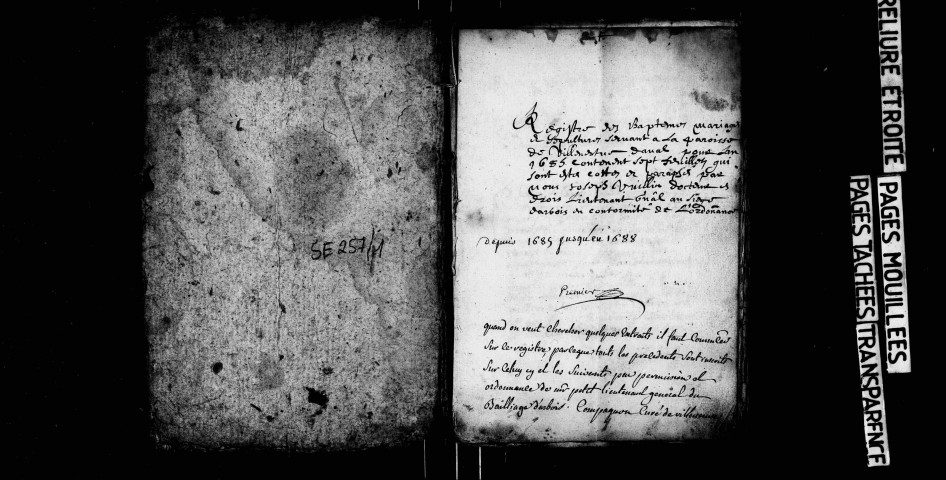 SE 257/1
Registre des Baptemes mariage
et sepultures servant a La paroisse
de Villeneuve daval pour Lan
1685 contenant sept feuillet qui
sont este cottes et paraphé par
nous Joseph docteur es
drois Lieutenant gnâl au siege
darbois en conformité de Lordonance
depuis 1685 jusqu'en 1688
Premier
quand on veut chercher quelques extraits il faut
sur le registre parceque touts les precedents sont
sur Celuy cy et les suivants par permission et
ordonnance de mr petit lieutenant general du
Bailliage d'arbois. Compagnon Curé de
RELIURE ÉTROITE
PAGES MOUILLÉES
PAGES TACHÉES/TRANSPARENCE